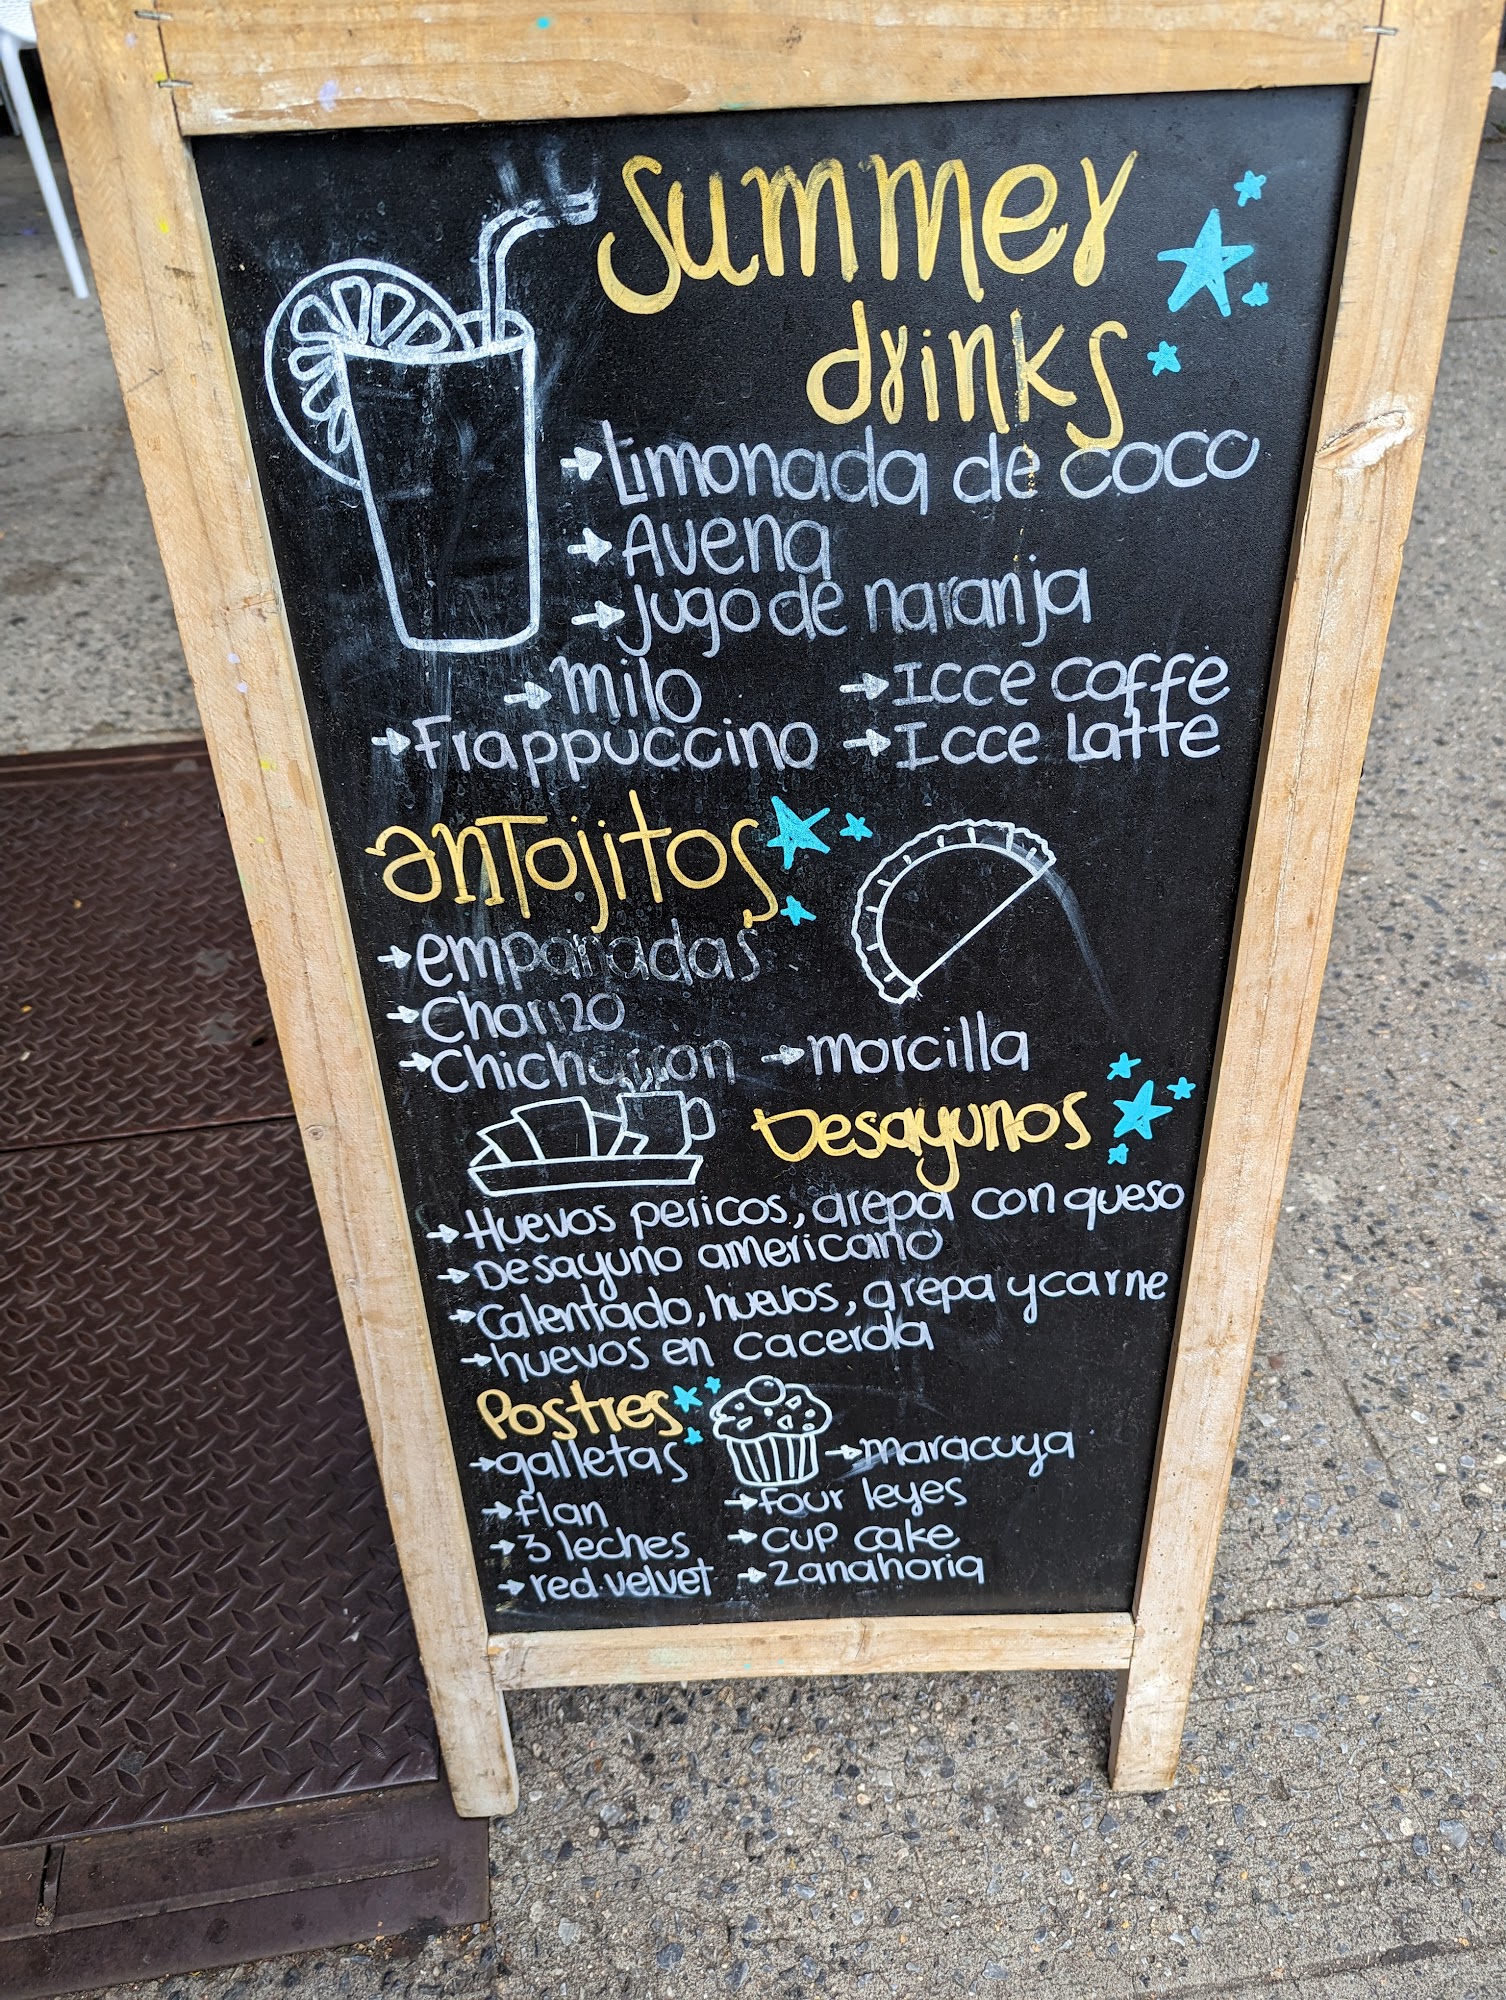 Summer
drinks
→Limonada de coco
→Avena
→Jugo de naranja
→milo →Icce coffe
→Frappuccino →Icce Latte
antojitos
→empanadas
→Chorizo
→Chicharron →morcilla
Desayunos
→Huevos pericos, arepa con queso
→Desayuno americano
→Calentado, huevos, arepa y carne
→huevos en cacerola
Postres
→galletas →maracuya
→flan →four leyes
→3 leches →cup cake
→red velvet →zanahoria